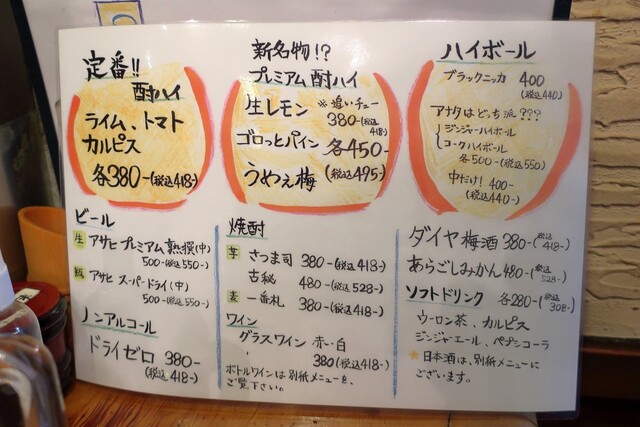 定番!!
酎ハイ
ライム、トマト
カルピス
各380-(税込418-)
新名物!?
プレミアム酎ハイ
生レモン ※追いチュー
380-(税込418-)
ゴロっとパイン 各450-
うめぇ梅 (税込495-)
ハイボール
ブラックニッカ 400
(税込440)
アナタはどっち派???
ジンジャーハイボール
コークハイボール
各500-(税込550)
中だけ! 400-
(税込440-)
ビール
生 アサヒプレミアム熟撰(中)
500-(税込550-)
瓶 アサヒ スーパードライ(中)
500-(税込550-)
ノンアルコール
ドライゼロ 380-
(税込418-)
焼酎
芋 さつま司 380-(税込418-)
古秘 480-(税込528-)
麦 一番札 380-(税込418-)
ワイン
グラスワイン 赤・白
380(税込418-)
ボトルワインは別紙メニューを、
ご覧下さい。
ダイヤ梅酒 380-(税込418-)
あらごしみかん 480-(税込528-)
ソフトドリンク 各280-(税込308-)
ウーロン茶、カルピス
ジンジャエール、ペプシコーラ
★日本酒は、別紙メニューに
ございます。